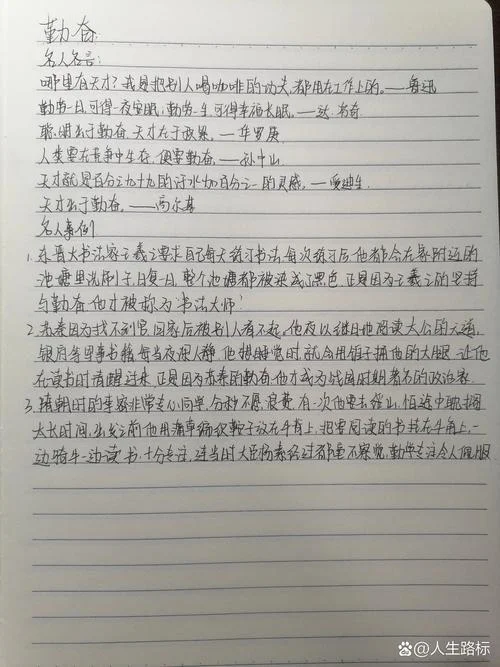 勤奋:
名人名言:
哪里有天才？我是把别人喝咖啡的功夫，都用在工作上的。——鲁迅
勤劳一日，可得一夜安眠；勤劳一生，可得幸福长眠。——达·芬奇
聪明出于勤奋，天才在于积累。——华罗庚
人类要在竞争中生存，便要勤奋。——孙中山
天才就是百分之九十九的汗水加百分之一的灵感。——爱迪生
天才出于勤奋。——高尔基
名人事例
1. 东晋大书法家王羲之要求自己每天练习书法，每次练习后他都会在家附近的
池塘里洗刷子，日复一日，整个池塘都被染成了黑色，正是因为王羲之的坚持
与勤奋，他才被称为书法大师！
2. 苏秦因为找不到官，回家后被别人看不起，他夜以继日地阅读太公的
书籍，每当夜深人静，他想睡觉时就会用锥子捅他的大腿，让他
在读书时清醒过来，正是因为苏秦的勤奋，他才成为战国时期著名的政治家
3. 隋朝时的李密非常专心向学，分秒不愿浪费，有一次他要去缑山，怕途中耽搁
太长时间，出发之前他用蒲草编织鞍子放在牛背上，把要阅读的书挂在牛角上，一
边骑牛一边读书，十分专注，连当时大臣杨素经过都毫不察觉，勤学专注令人佩服
@人生路标